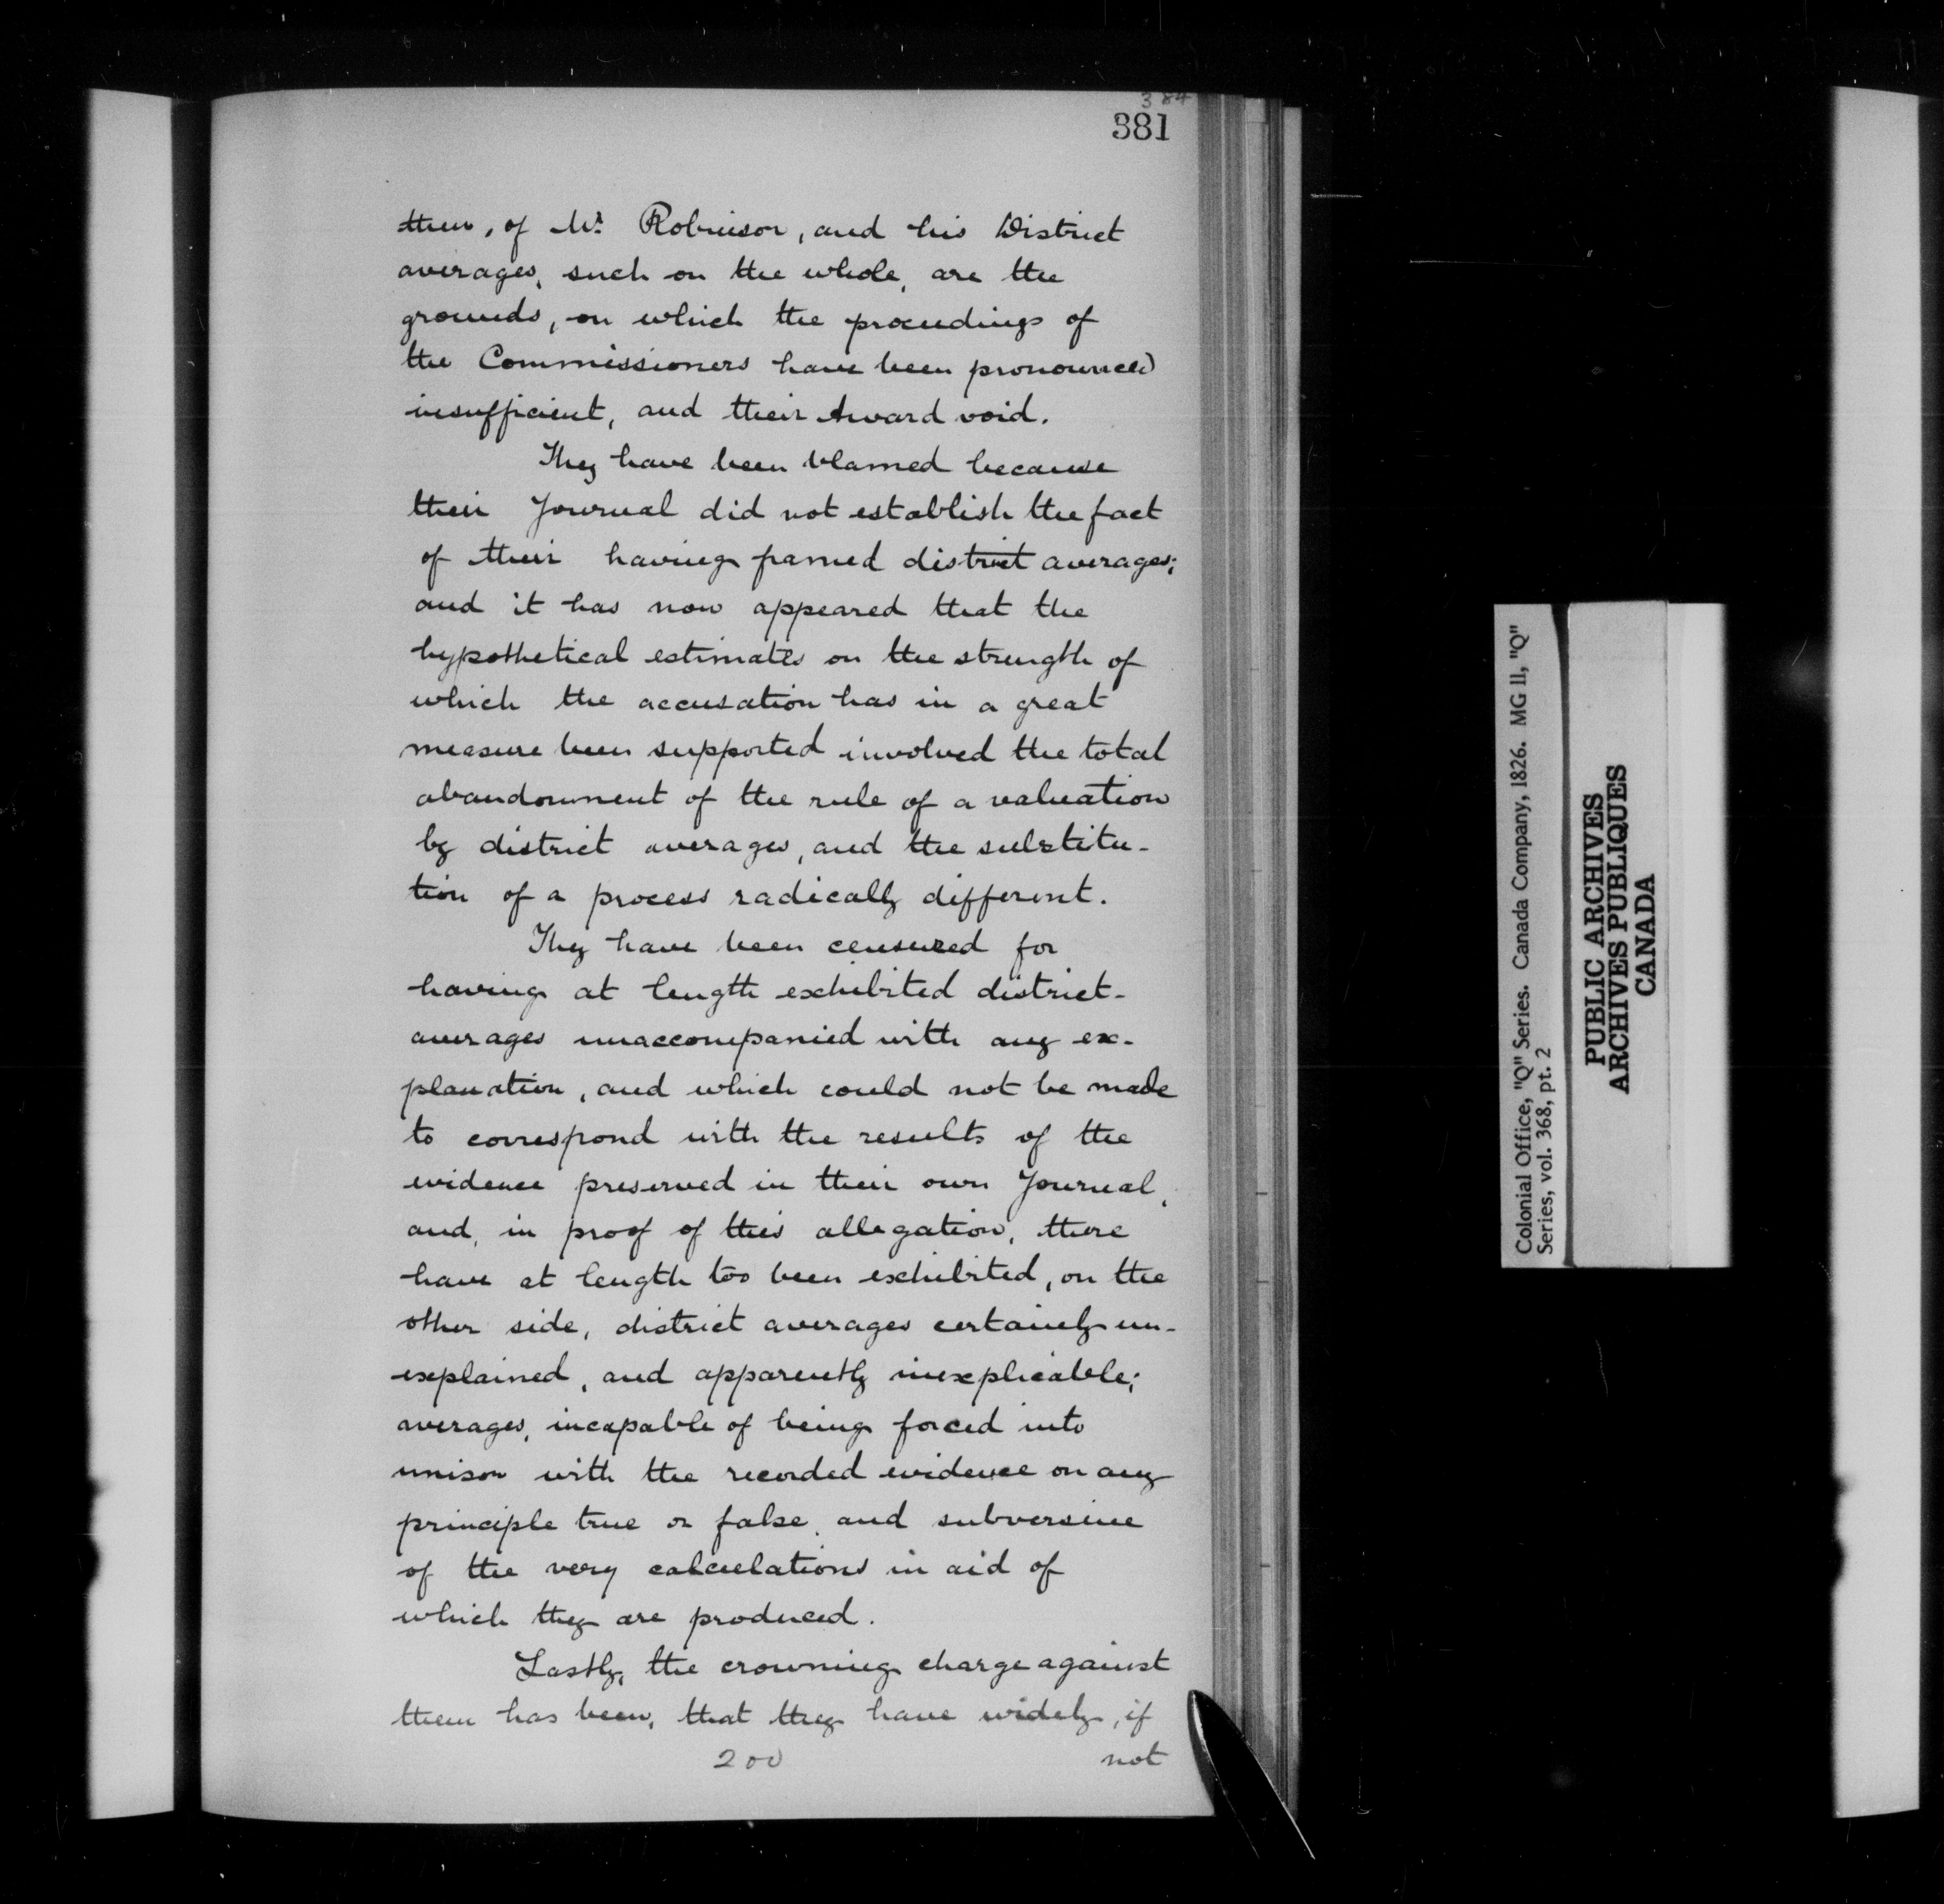 384
381
then, of Mr. Robinson, and his District
averages, such on the whole, are the
grounds, on which the proceedings of
the Commissioners have been pronounced
insufficient, and their Award void.
They have been blamed because
their Journal did not establish the fact
of their having framed district averages;
and it has now appeared that the
hypothetical estimates on the strength of
which the accusation has in a great
measure been supported involved the total
abandonment of the rule of a valuation
by district averages, and the substitu-
tion of a process radically different.
They have been censured for
having at length exhibited district-
averages unaccompanied with any ex-
planation, and which could not be made
to correspond with the results of the
evidence preserved in their own Journal,
and, in proof of this allegation, there
have at length too been exhibited, on the
other side, district averages certainly un-
explained, and apparently inexplicable;
averages, incapable of being forced into
unison with the recorded evidence on any
principle true or false, and subversive
of the very calculations in aid of
which they are produced.
Lastly, the crowning charge against
them has been, that they have widely, if
200 not
Colonial Office, "Q" Series. Canada Company, 1826. MG 11, "Q"
Series, vol. 368, pt. 2
PUBLIC ARCHIVES
ARCHIVES PUBLIQUES
CANADA